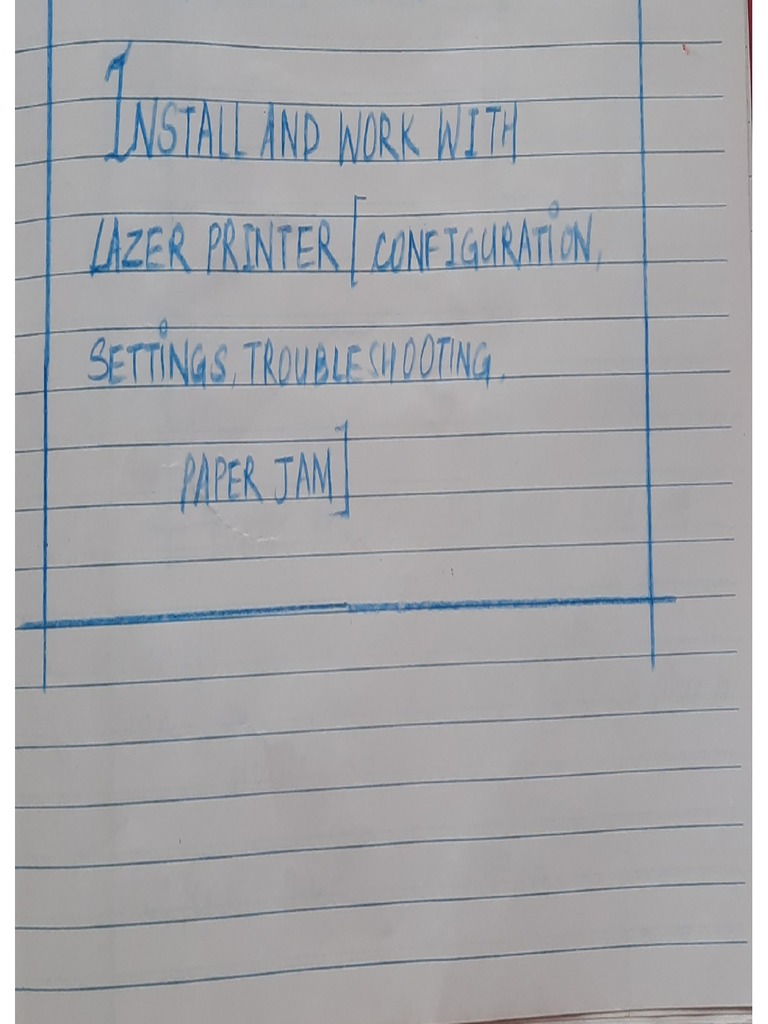 INSTALL AND WORK WITH
LAZER PRINTER [CONFIGURATION,
SETTINGS, TROUBLESHOOTING,
PAPER JAM]